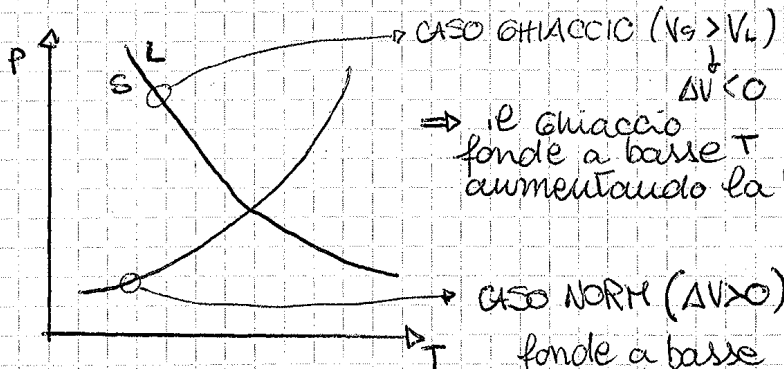 P
L
S
CASO GHIACCIO (Vs > VL)
↓
ΔV < 0
⇒ il ghiaccio
fonde a basse T
aumentando la
CASO NORM (ΔV>0)
T
fonde a basse